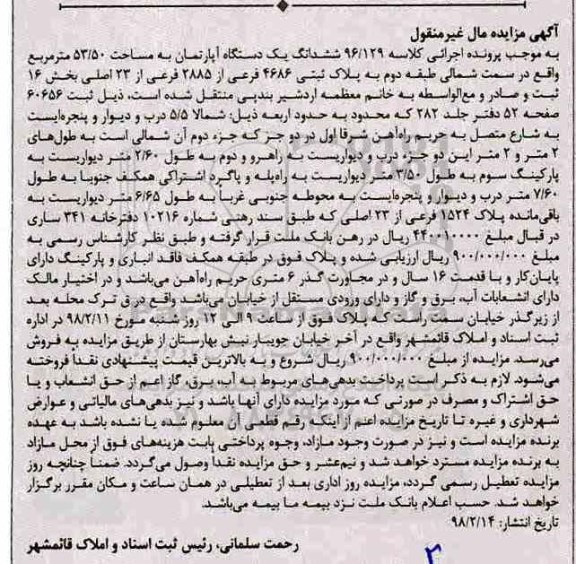 آگهی مزایده مال غیرمنقول
به موجب پرونده اجرائی کلاسه ۹۶/۱۲۹ ششدانگ یک دستگاه آپارتمان به مساحت ۵۳/۵۰ مترمربع
واقع در سمت شمالی طبقه دوم به پلاک ثبتی ۴۶۸۶ فرعی از ۲۸۸۵ فرعی از ۲۳ اصلی بخش ۱۶
ثبت و صادر و مع‌الواسطه به خانم معظمه اردشیر بندپی منتقل شده است، ذیل ثبت ۶۰۶۵۶
صفحه ۵۲ دفتر جلد ۲۸۲ که محدود به حدود اربعه ذیل: شمالا ۵/۵ درب و دیوار و پنجره‌ایست
به شارع متصل به حریم راه‌آهن شرقا اول در دو جز که جزء دوم آن شمالی است به طول‌های
۲ متر و ۲ متر این دو جزء درب و دیواریست به راهرو و دوم به طول ۲/۶۰ متر دیواریست به
پارکینگ سوم به طول ۳/۵۰ متر دیواریست به راه‌پله و پاگرد اشتراکی همکف جنوبا به طول
۷/۶۰ متر درب و دیوار و پنجره‌ایست به محوطه جنوبی غربا به طول ۶/۶۵ متر دیواریست به
باقی‌مانده پلاک ۱۵۲۴ فرعی از ۲۳ اصلی که طبق سند رهنی شماره ۱۰۲۱۶ دفترخانه ۳۴۱ ساری
در قبال مبلغ ۴۴۰۰۱۰۰۰۰ ریال در رهن بانک ملت قرار گرفته و طبق نظر کارشناس رسمی به
مبلغ ۹۰۰/۰۰۰/۰۰۰ ریال ارزیابی شده و پلاک فوق در طبقه همکف فاقد انباری و پارکینگ دارای
پایان‌کار و با قدمت ۱۶ سال و در مجاورت گذر ۶ متری حریم راه‌آهن می‌باشد و در اختیار مالک
دارای انشعابات آب، برق و گاز و دارای ورودی مستقل از خیابان می‌باشد واقع در ق ترک محله بعد
از زیرگذر خیابان سمت راست که پلاک فوق از ساعت ۹ الی ۱۲ روز شنبه مورخ ۹۸/۲/۱۱ در اداره
ثبت اسناد و املاک قائمشهر واقع در آخر خیابان جویبار نبش بهارستان از طریق مزایده به فروش
می‌رسد. مزایده از مبلغ ۹۰۰/۰۰۰/۰۰۰ ریال شروع و به بالاترین قیمت پیشنهادی نقدا فروخته
می‌شود. لازم به ذکر است پرداخت بدهی‌های مربوط به آب، برق، گاز اعم از حق انشعاب و یا
حق اشتراک و مصرف در صورتی که مورد مزایده دارای آنها باشد و نیز بدهی‌های مالیاتی و عوارض
شهرداری و غیره تا تاریخ مزایده اعم از اینکه رقم قطعی آن معلوم شده یا نشده باشد به عهده
برنده مزایده است و نیز در صورت وجود مازاد، وجوه پرداختی بابت هزینه‌های فوق از محل مازاد
به برنده مزایده مسترد خواهد شد و نیم‌عشر و حق مزایده نقدا وصول می‌گردد. ضمنا چنانچه روز
مزایده تعطیل رسمی گردد، مزایده روز اداری بعد از تعطیلی در همان ساعت و مکان مقرر برگزار
خواهد شد. حسب اعلام بانک ملت نزد بیمه ما بیمه می‌باشد.
تاریخ انتشار: ۹۸/۲/۱۴
رحمت سلمانی، رئیس ثبت اسناد و املاک قائمشهر
۲